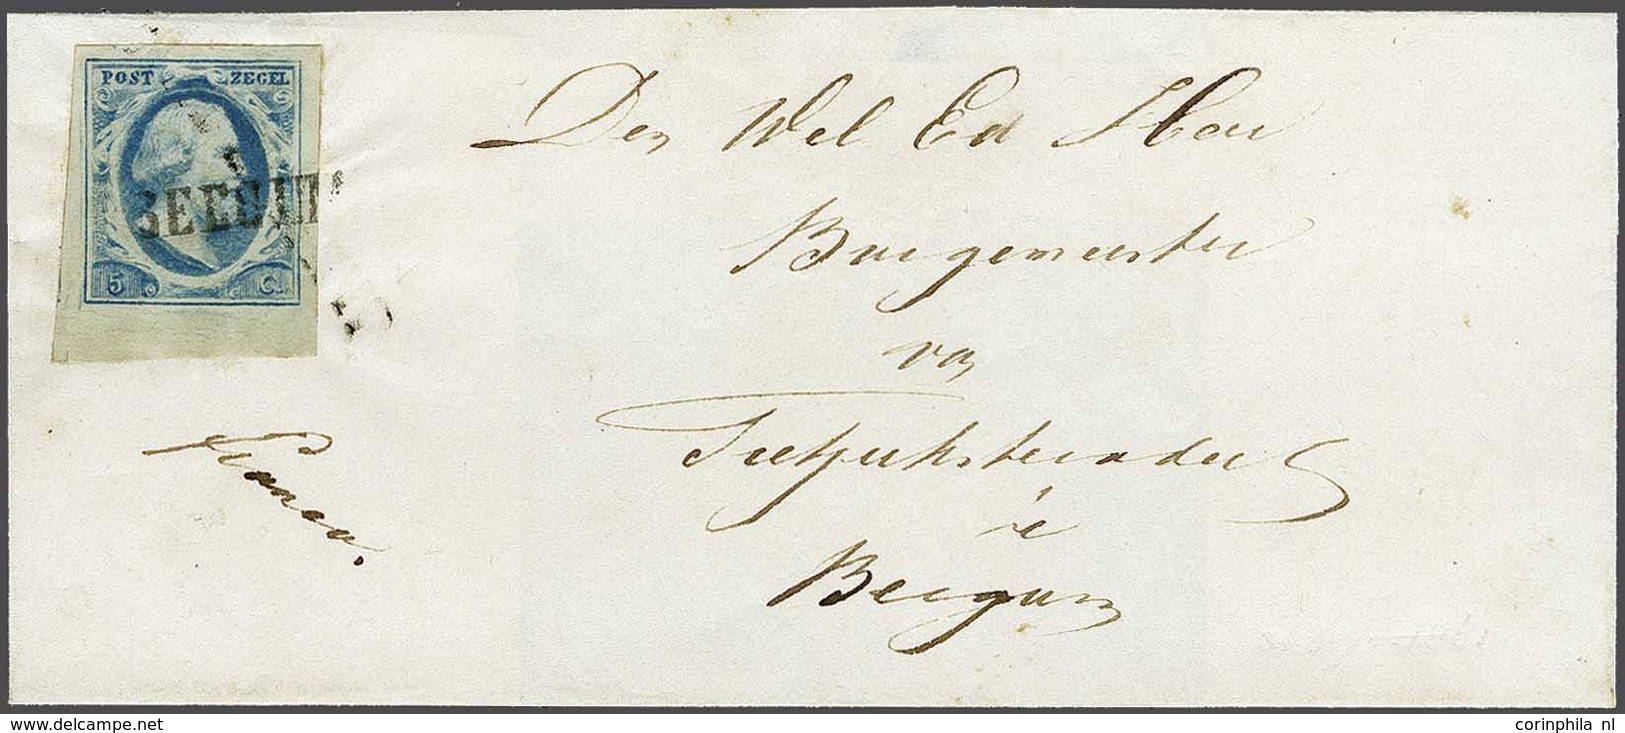 POST ZEGEL
5 C.
Den Wel Ed Heer
Burgemeester
van
Tietjerksteradeel
te
Bergum
Franco.
delcampe.net
corinphila nl